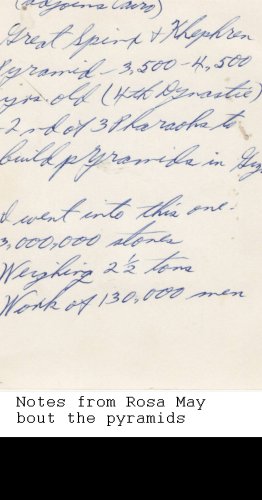 (adjoins Cairo)
Great Spinx & Khephren
Pyramid - 3,500 - 4,500
yrs. old (4th Dynastie)
- 2nd of 3 Pharaohs to
build pyramids in Giz
I went into this one:
3,000,000 stones
Weighing 2 ½ tons
Work of 130,000 men
Notes from Rosa May
bout the pyramids